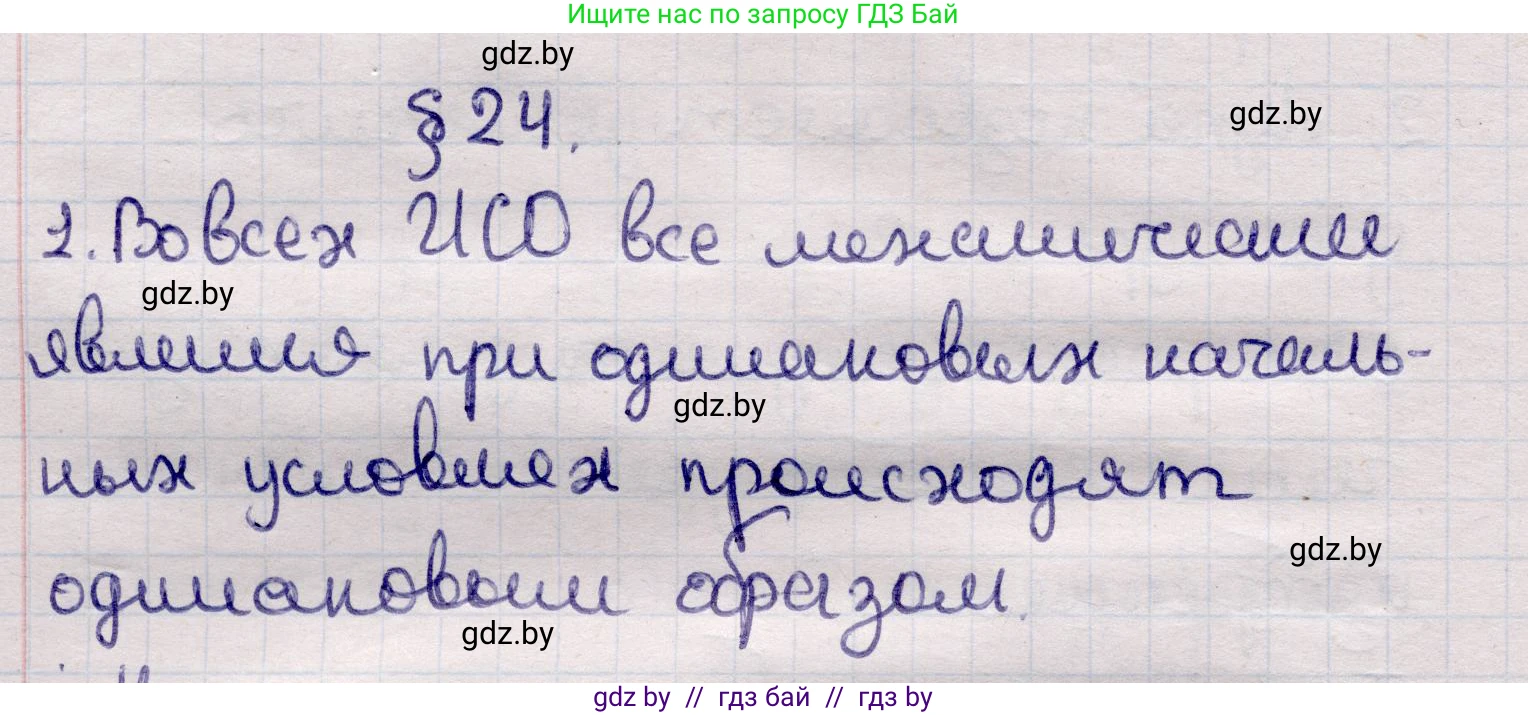 Ищите нас по запросу ГДЗ Бай
gdz.by
§ 24.
gdz.by
1. Во всех ИСО все механические
gdz.by
явления при одинаковых началь-
gdz.by
ных условиях происходят
gdz.by
одинаковым образом.
gdz.by
gdz by // гдз бай // гдз by